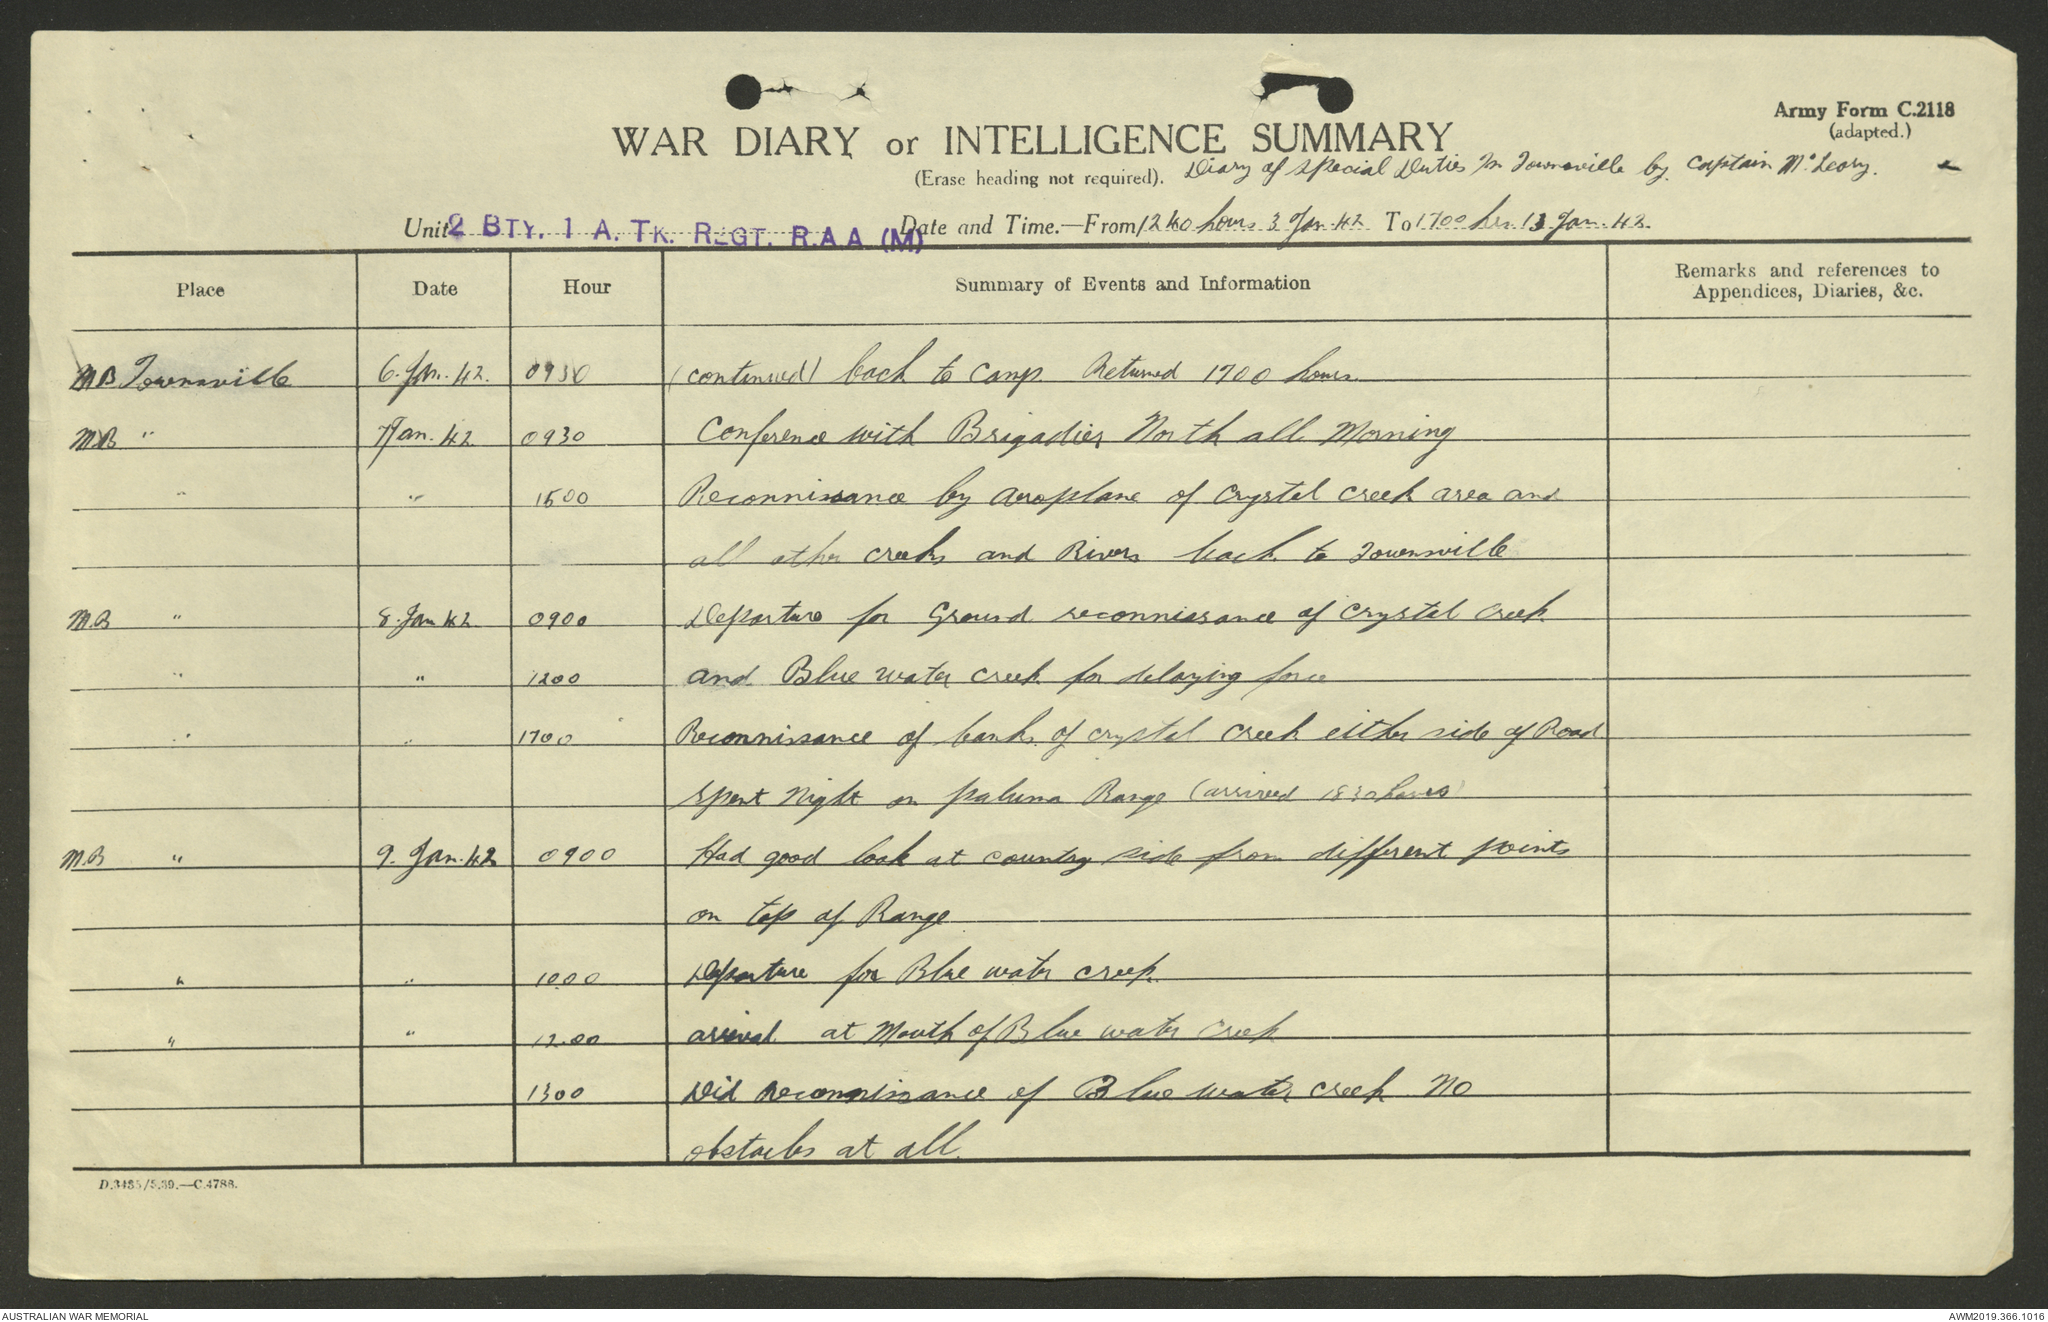 Army Form C.2118
(adapted.)
WAR DIARY or INTELLIGENCE SUMMARY
(Erase heading not required). Diary of special Duties in Townsville by Captain McLeary.
Unit 2 BTY. 1 A. TK. REGT. R.A.A (M) Date and Time.—From 1240 hours 3 Jan. 42 To 1700 hrs. 13 Jan. 42.
Place Date Hour Summary of Events and Information Remarks and references to Appendices, Diaries, &c.
MB Townsville 6. Jan. 42. 0930 (continued) back to camp. Returned 1700 hours.
MB " 7 Jan. 42 0930 Conference with Brigadier North all Morning
" " 1500 Reconnissance by aeroplane of Crystal Creek area and
all other creeks and Rivers back to Townsville
M.B " 8. Jan 42 0900 Departure for Ground reconnissance of Crystal Creek
" " 1200 and Blue water creek for delaying force
" " 1700 Reconnissance of banks of crystal Creek either side of Road
spent Night on paluma Range (arrived 1830 hours)
M.B " 9. Jan. 42 0900 Had good look at country side from different points
on top of Range
" " 1000 Departure for Blue water creek.
" " 12.00 arrival at Mouth of Blue water Creek
1300 Did Reconnissance of Blue water creek No
obstacles at all.
D.3435/5.39.—C.4788.
AUSTRALIAN WAR MEMORIAL AWM2019.366.1016